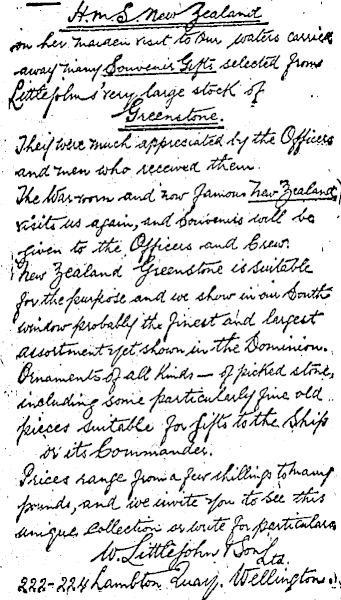 H.M.S. New Zealand
on her maiden visit to our waters carried
away many Souvenir Gifts selected from
Littlejohns' very large stock of
Greenstone.
They were much appreciated by the Officers
and men who received them.
The War-worn and now famous New Zealand,
visits us again, and Souvenirs will be
given to the Officers and Crew.
New Zealand Greenstone is suitable
for the purpose and we show in our South
window probably the finest and largest
assortment yet shown in the Dominion.
Ornaments of all kinds — of picked stone,
including some particularly fine old
pieces suitable for gifts to the Ship
or its Commander.
Prices range from a few shillings to many
pounds, and we invite you to see this
unique collection or write for particulars
W. Littlejohn & Son Ltd.
222-224 Lambton Quay, Wellington.